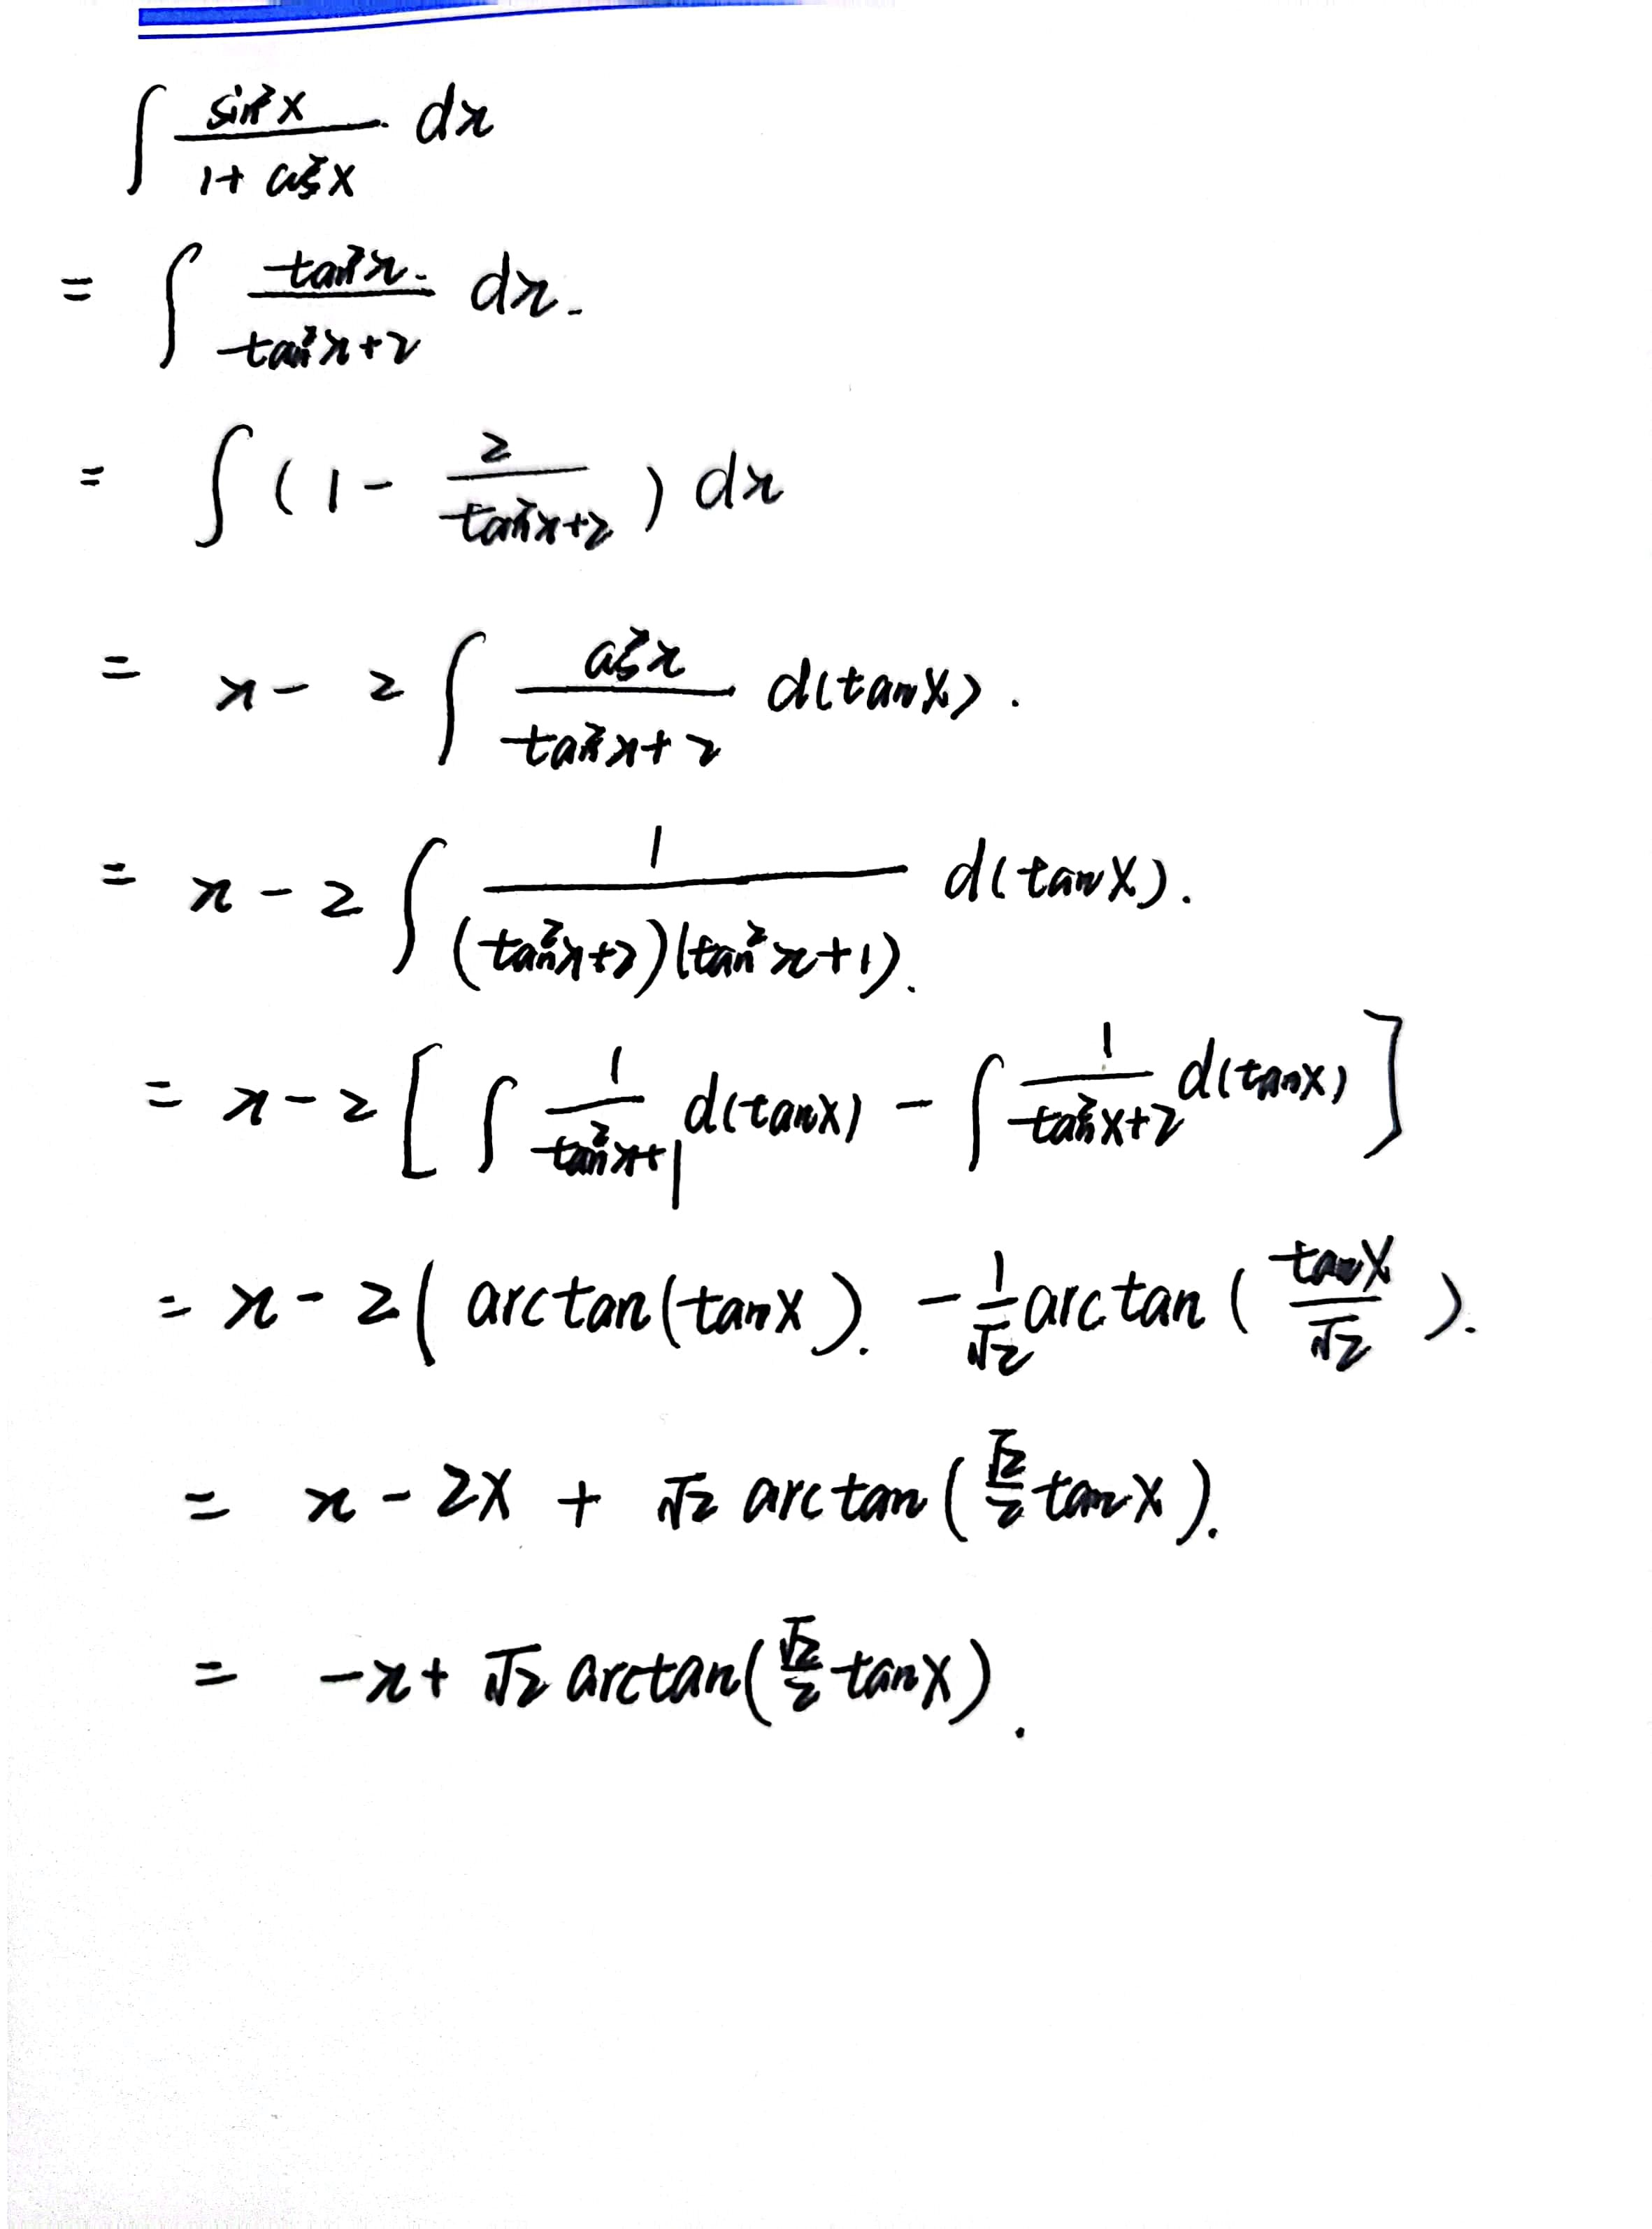 ∫ sin²x / (1 + cos²x) dx
= ∫ tan²x / (tan²x+2) dx.
= ∫ (1 - 2 / (tan²x+2)) dx
= x - 2 ∫ cos²x / (tan²x+2) d(tanx).
= x - 2 ∫ 1 / ((tan²x+2)(tan²x+1)) d(tanx).
= x - 2 [ ∫ 1 / (tan²x+1) d(tanx) - ∫ 1 / (tan²x+2) d(tanx) ]
= x - 2 ( arctan(tanx). - 1/√2 arctan ( tanx / √2 ).
= x - 2x + √2 arctan ( √2/2 tanx ).
= -x + √2 arctan( √2/2 tanx ).